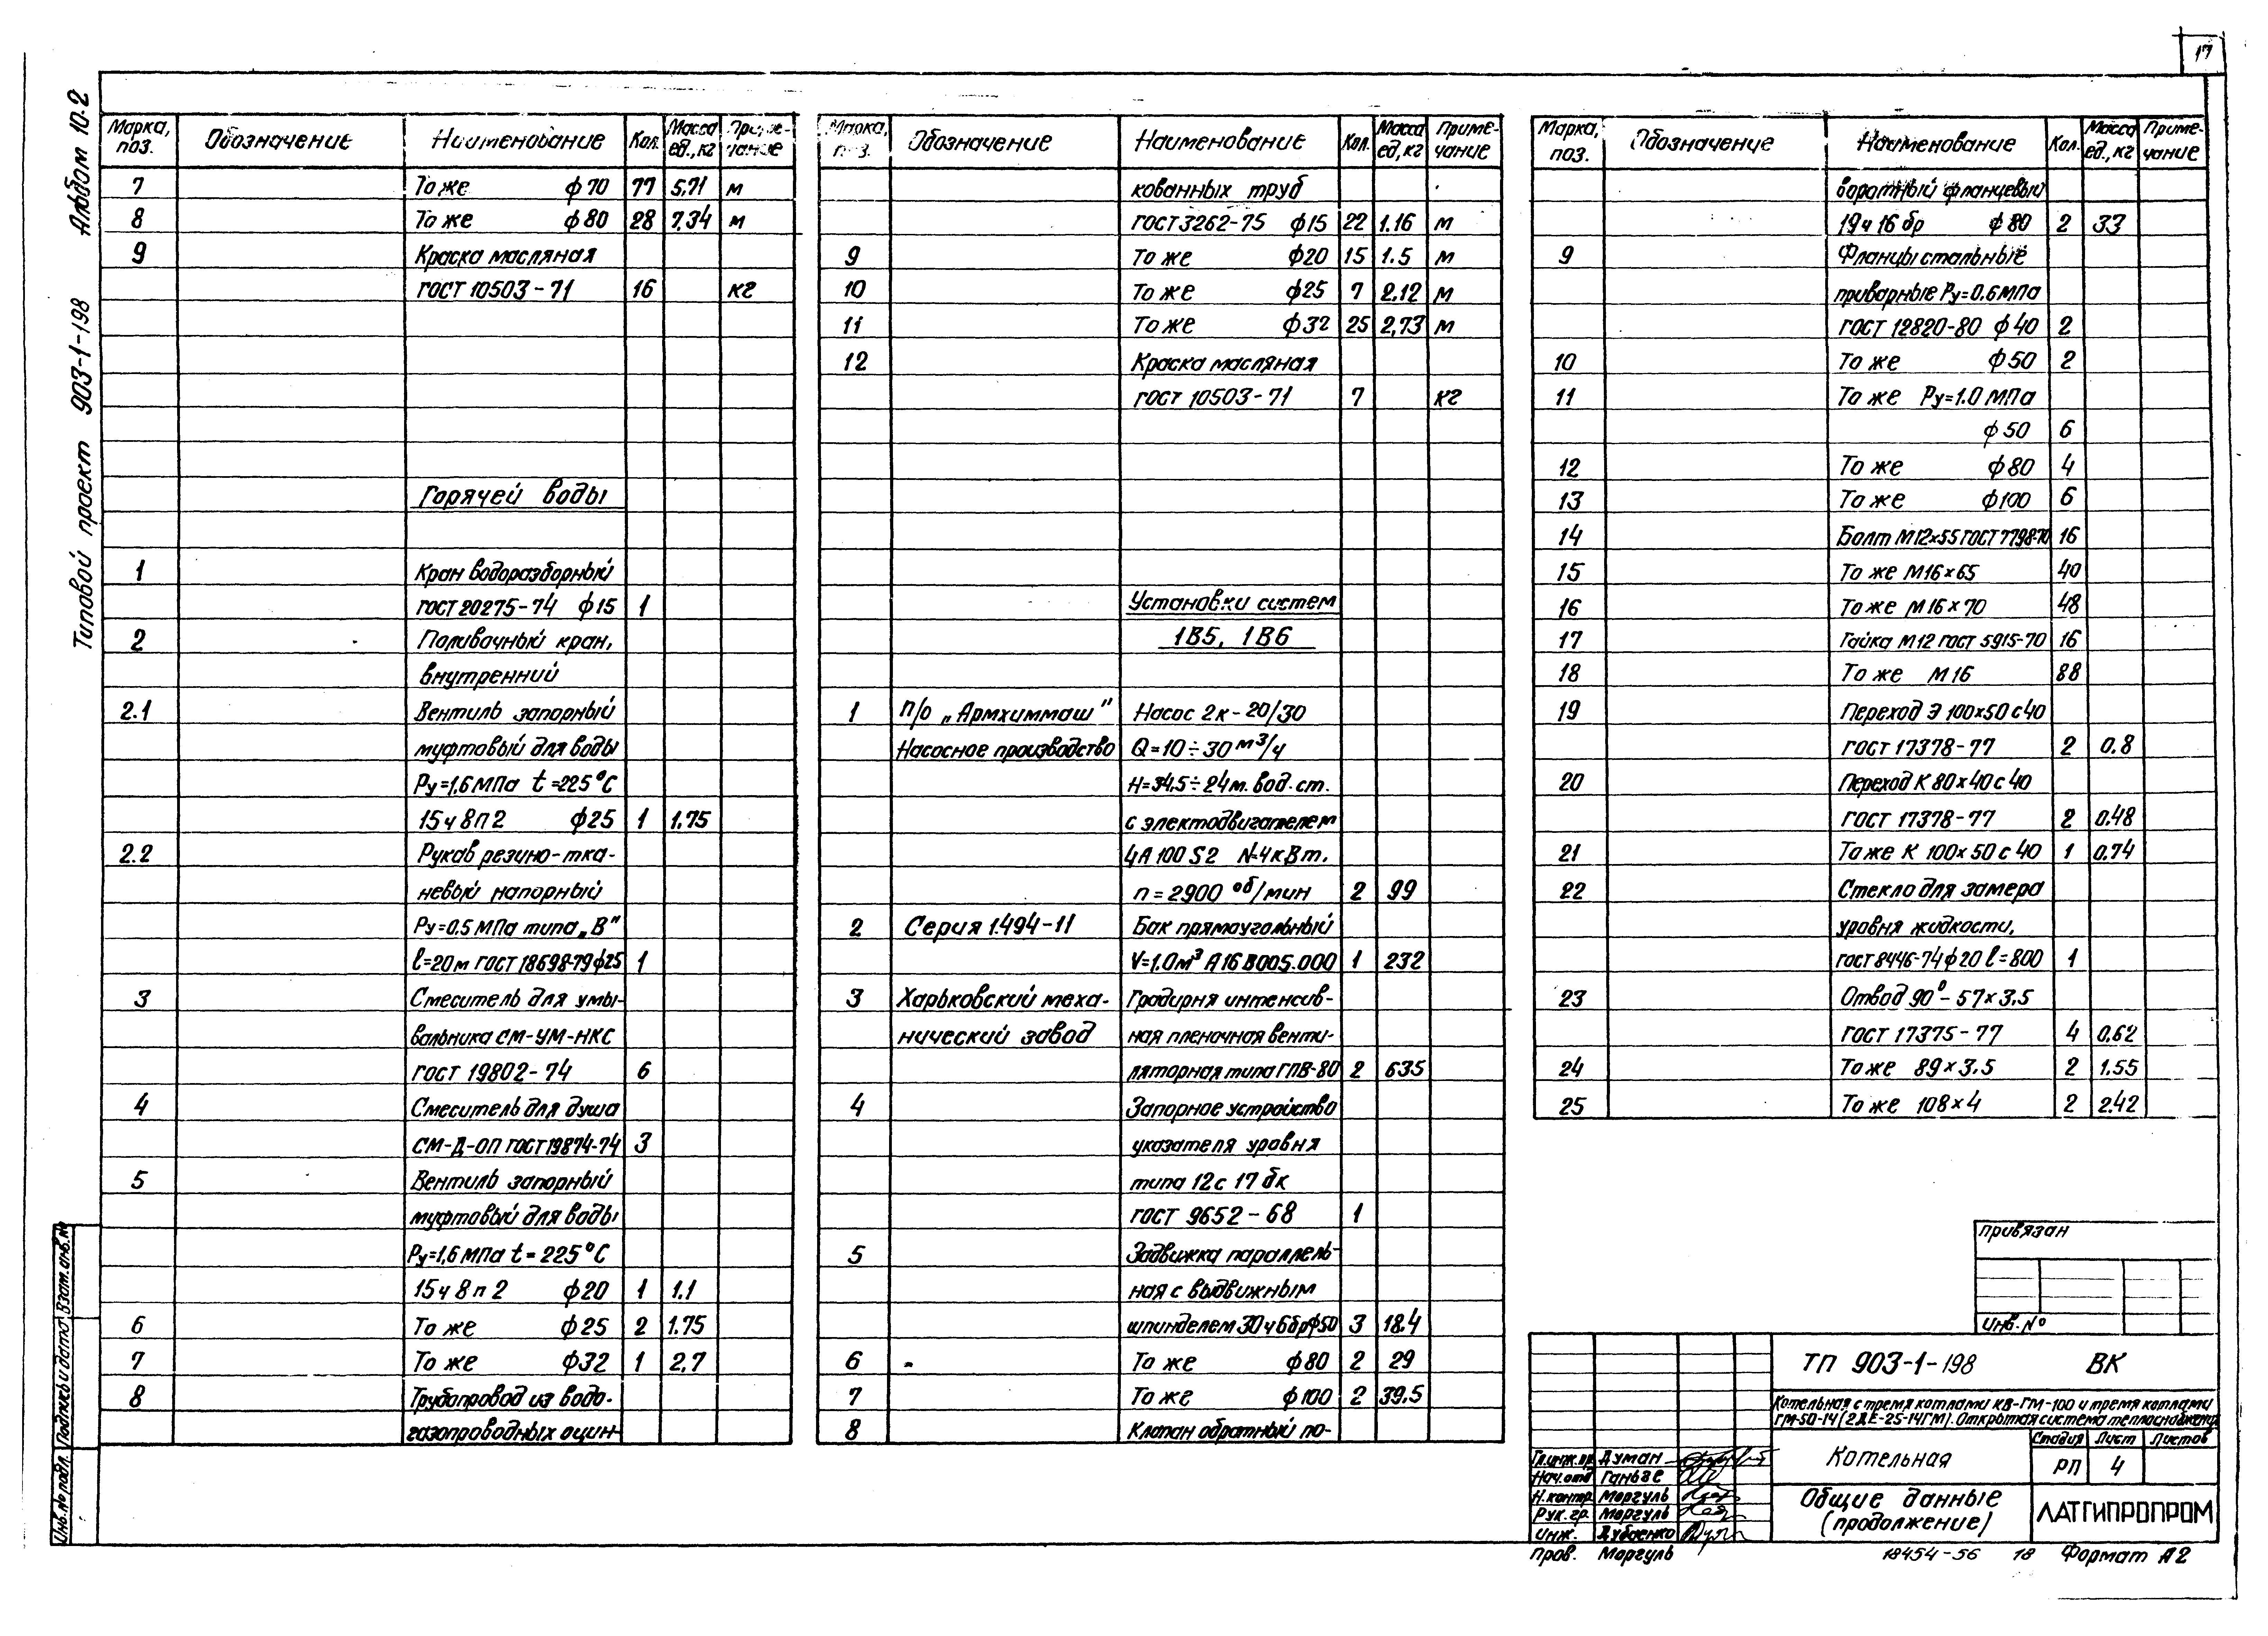 17
Типовой проект 903-1-198 Альбом 10.2
Марка, поз. Обозначение Наименование Кол. Масса ед., кг Примечание
7 То же ф70 77 5.71 м
8 То же ф80 28 7.34 м
9 Краска масляная
ГОСТ 10503-71 16 кг
Горячей воды
1 Кран водоразборный
ГОСТ 20275-74 ф15 1
2 Поливочный кран,
внутренний
2.1 Вентиль запорный
муфтовый для воды
Ру=1,6 МПа t=225°С
15ч8п2 ф25 1 1.75
2.2 Рукав резино-тка-
невый напорный
Ру=0.5 МПа типа „В"
ℓ=20м ГОСТ 18698-79 ф25 1
3 Смеситель для умы-
вальника СМ-УМ-НКС
ГОСТ 19802-74 6
4 Смеситель для душа
СМ-Д-ОП ГОСТ 19874-74 3
5 Вентиль запорный
муфтовый для воды
Ру=1,6 МПа t=225°С
15ч8п2 ф20 1 1.1
6 То же ф25 2 1.75
7 То же ф32 1 2,7
8 Трубопровод из водо-
газопроводных оцин-
Марка, поз. Обозначение Наименование Кол. Масса ед, кг Приме-чание
кованных труб
ГОСТ 3262-75 ф15 22 1.16 м
9 То же ф20 15 1.5 м
10 То же ф25 7 2.12 м
11 То же ф32 25 2,73 м
12 Краска масляная
ГОСТ 10503-71 7 кг
Установки систем
1В5, 1В6
1 П/О „Армхиммаш" Насос 2к-20/30
Насосное производство Q=10÷30 м³/ч
Н=34,5÷24м. вод. ст.
с электодвигателем
4А100S2 N=4кВт.
n=2900 об/мин 2 99
2 Серия 1.494-11 Бак прямоугольный
V=1.0м³ А16В005.000 1 232
3 Харьковский меха- Градирня интенсив-
нический завод ная пленочная венти-
ляторная типа ГПВ-80 2 635
4 Запорное устройство
указателя уровня
типа 12с17бк
ГОСТ 9652-68 1
5 Задвижка параллель-
ная с выдвижным
шпинделем 30ч6бр ф50 3 18.4
6 То же ф80 2 29
7 То же ф100 2 39.5
8 Клапан обратный по-
Марка, поз. Обозначение Наименование Кол. Масса ед., кг Приме-чание
воротный фланцевый
19ч16бр ф80 2 33
9 Фланцы стальные
приварные Ру=0.6 МПа
ГОСТ 12820-80 ф40 2
10 То же ф50 2
11 То же Ру=1.0 МПа
ф50 6
12 То же ф80 4
13 То же ф100 6
14 Болт М12х55 ГОСТ 7798-70 16
15 То же М16х65 40
16 То же М16х70 48
17 Гайка М12 ГОСТ 5915-70 16
18 То же М16 88
19 Переход Э 100х50 с40
ГОСТ 17378-77 2 0.8
20 Переход К 80х40 с 40
ГОСТ 17378-77 2 0.48
21 То же К 100х50 с 40 1 0.74
22 Стекло для замера
уровня жидкости,
ГОСТ 8446-74 ф20 ℓ=800 1
23 Отвод 90°-57х3.5
ГОСТ 17375-77 4 0.62
24 То же 89х3.5 2 1.55
25 То же 108х4 2 2.42
Привязан
Инв. №
ТП 903-1-198 ВК
Котельная с тремя котлами КВ-ГМ-100 и тремя котлами
ГМ-50-14 (2ДЕ-25-14ГМ). Открытая система теплоснабжения
Котельная
Стадия Лист Листов
РП 4
Общие данные
(продолжение)
ЛАТГИПРОПРОМ
Гл.инж.пр. Думан
Нач.отд. Ганьзе
Н.контр. Моргуль
Рук.гр. Моргуль
Инж. Дубоенко
Пров. Моргуль
18454-56 18 Формат А2
Инв. № подл. Подпись и дата Взам. инв. №